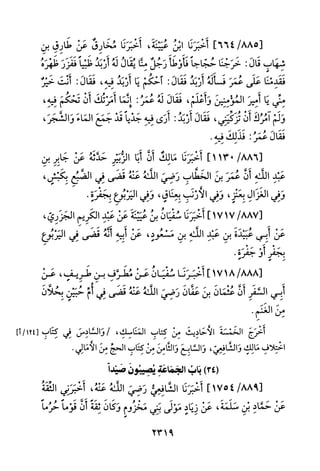 [٦٦٤/٨٨٥] أَخْبَرَنَا ابْنُ عُيَيْنَةَ، أَخْبَرَنَا مُخَارِقٌ عَنْ طَارِقِ بنِ
شِهَابٍ قَالَ: خَرَجْنَا حُجاجاً فَأَوْطَأَ رَجُلٌ مِنَّا يُقَالُ لَهُ أَرْبَدُ ضَبّاً فَفَزَرَ ظَهْرَهُ
فَقَدِمْنَا عَلَى عُمَرَ فَسَأَلَهُ أَرْبَدُ، فَقَالَ: احْكُمْ يَا أَرْبَدُ فِيهِ، فَقَالَ: أَنْتَ خَيْرٌ
مِنِّي يَا أَمِيرَ المُؤْمِنِينَ وَأَعْلَمُ، فَقَالَ لَهُ عُمَرُ: إِنَّمَا أَمَرْتُكَ أَنْ تَحْكُمَ فِيهِ،
وَلَمْ آمُرْكَ أَنْ تُزَكِّيَنِي، فَقَالَ أَرْبَدُ: أَرَى فِيهِ جَدْياً قَدْ جَمَعَ المَاءَ وَالشَّجَرَ،
فَقَالَ عُمَرُ: فَذَلِكَ فِيهِ.
[١١٣٠/٨٨٦] أَخْبَرَنَا مَالِكٌ أَنَّ أَبَا الزُّبَيْرِ حَدَّثَهُ عَنْ جَابِرِ بنِ
عَبْدِ اللَّهِ أَنَّ عُمَرَ بنَ الخَطَّابِ رَضِيَ اللَّهُ عَنْهُ قَضَى فِي الضَّبُعِ بِكَبْشٍ،
وَفِي الغَزَالِ بِعَنْزٍ، وَفِي الأَرْنَبِ بِعَنَاقٍ، وَفِي اليَرْبُوعِ بِجَفْرَةٍ.
[١٧١٧/٨٨٧] أَخْبَرَنَا سُفْيَانُ بنُ عُيَيْنَةَ عَنْ عَبْدِ الكَرِيمِ الجَزَرِيِّ،
عَنْ أَبِي عُبَيْدَةَ بنِ عَبْدِ اللَّهِ بنِ مَسْعُودٍ، عَنْ أَبِيهِ أَنَّهُ قَضَى فِي اليَرْبُوعِ
بِجَفْرٍ أَوْ جَفْرَةٍ.
[١٧١٨/٨٨٨] أَخْبَرَنَا سُفْيَانُ عَنْ مُطَرِّفِ بنِ طَرِيفٍ، عَنْ
أَبِي السَّفَرِ أَنَّ عُثْمَانَ بنَ عَفَّانَ رَضِيَ اللَّهُ عَنْهُ قَضَى فِي أُمِّ حُبَيْنٍ بِحُلَّانَ
مِنَ الغَنَمِ.
أَخْرَجَ الخَمْسَةَ الأَحَادِيثَ مِنْ كِتَابِ المَنَاسِكِ، / وَالسَّادِسَ فِي كِتَابِ [١٢٤/أ]
اخْتِلَافِ مَالِكٍ وَالشَّافِعِيِّ، وَالسَّابِعَ وَالثَّامِنَ مِنْ كِتَابِ الحجِّ مِنَ الأَمَالِي.
(٣٤) بَابُ الجَمَاعَةِ يُصِيبُونَ صَيْداً
[١٧٥٤/٨٨٩] أَخْبَرَنَا الشَّافِعِيُّ رَضِيَ اللَّهُ عَنْهُ، أَخْبَرَنِي الثِّقَةُ
عَنْ حَمَّادِ بْنِ سَلَمَةَ، عَنْ زِيَادٍ مَوْلَى بَنِي مَخْزُومٍ وَكَانَ ثِقَةً أَنَّ قَوْماً حُرُماً
٢٣١٩